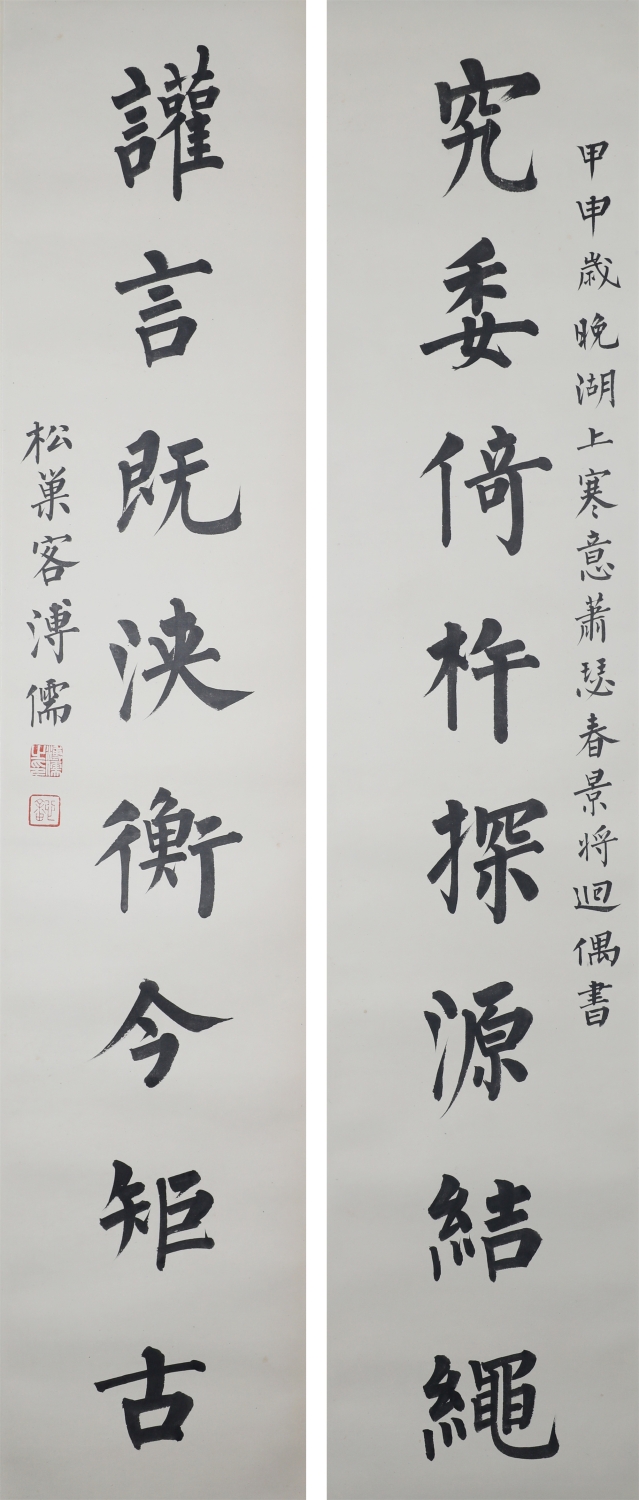 甲申歲晚湖上寒意蕭瑟春景將迴偶書
究委倚杵探源結繩
讙言既浹衡今矩古
松巢客溥儒
溥儒之印